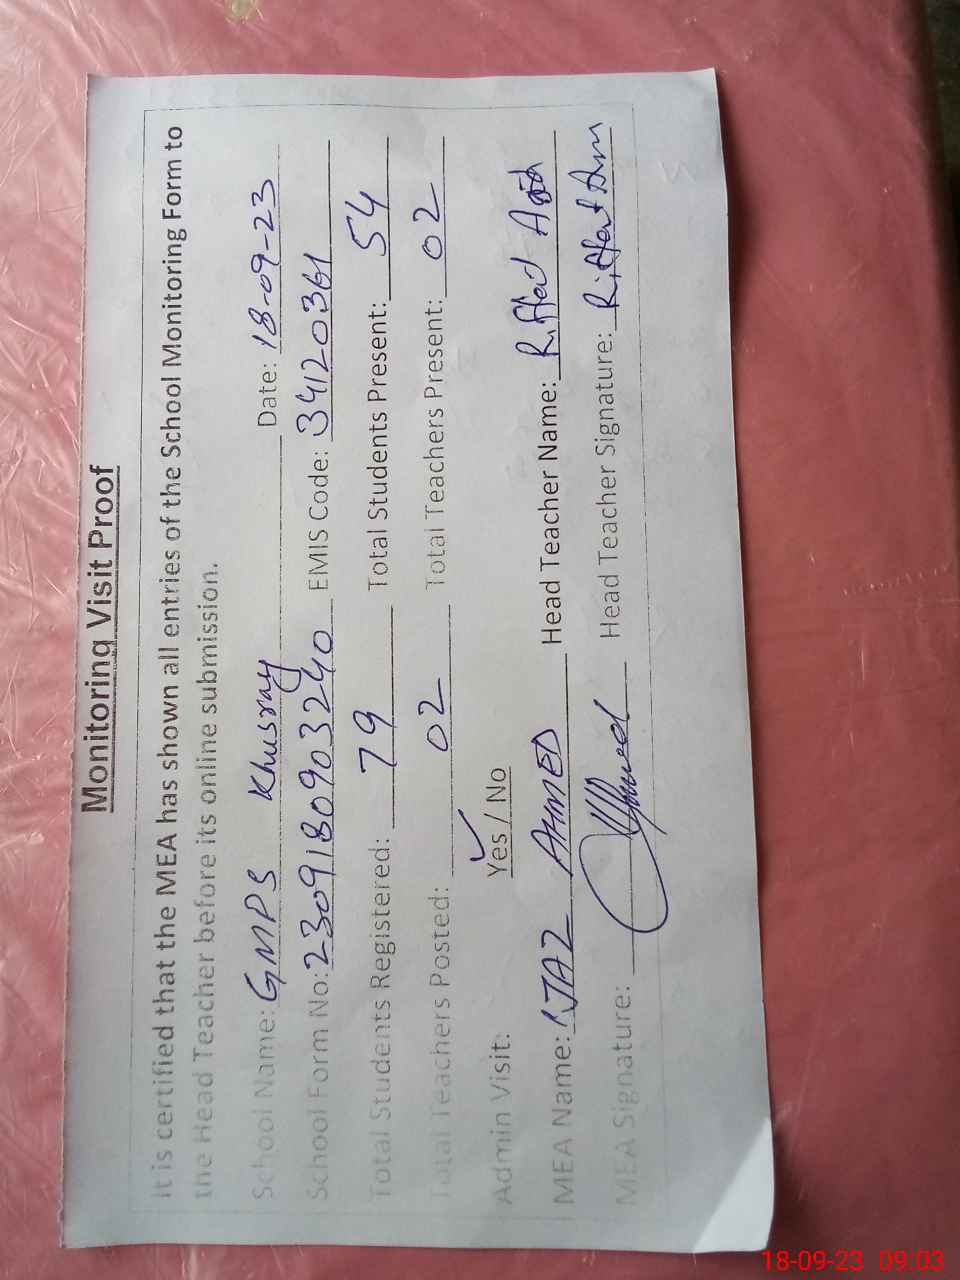 Monitoring Visit Proof
It is certified that the MEA has shown all entries of the School Monitoring Form to
the Head Teacher before its online submission.
School Name: GMPS Khusray Date: 18-09-23
School Form No: 230918090903240 EMIS Code: 34120361
Total Students Registered: 79 Total Students Present: 54
Total Teachers Posted: 02 Total Teachers Present: 02
Admin Visit: Yes / No
MEA Name: IJAZ AHMED Head Teacher Name:
MEA Signature: Head Teacher Signature:
18-09-23 09:03